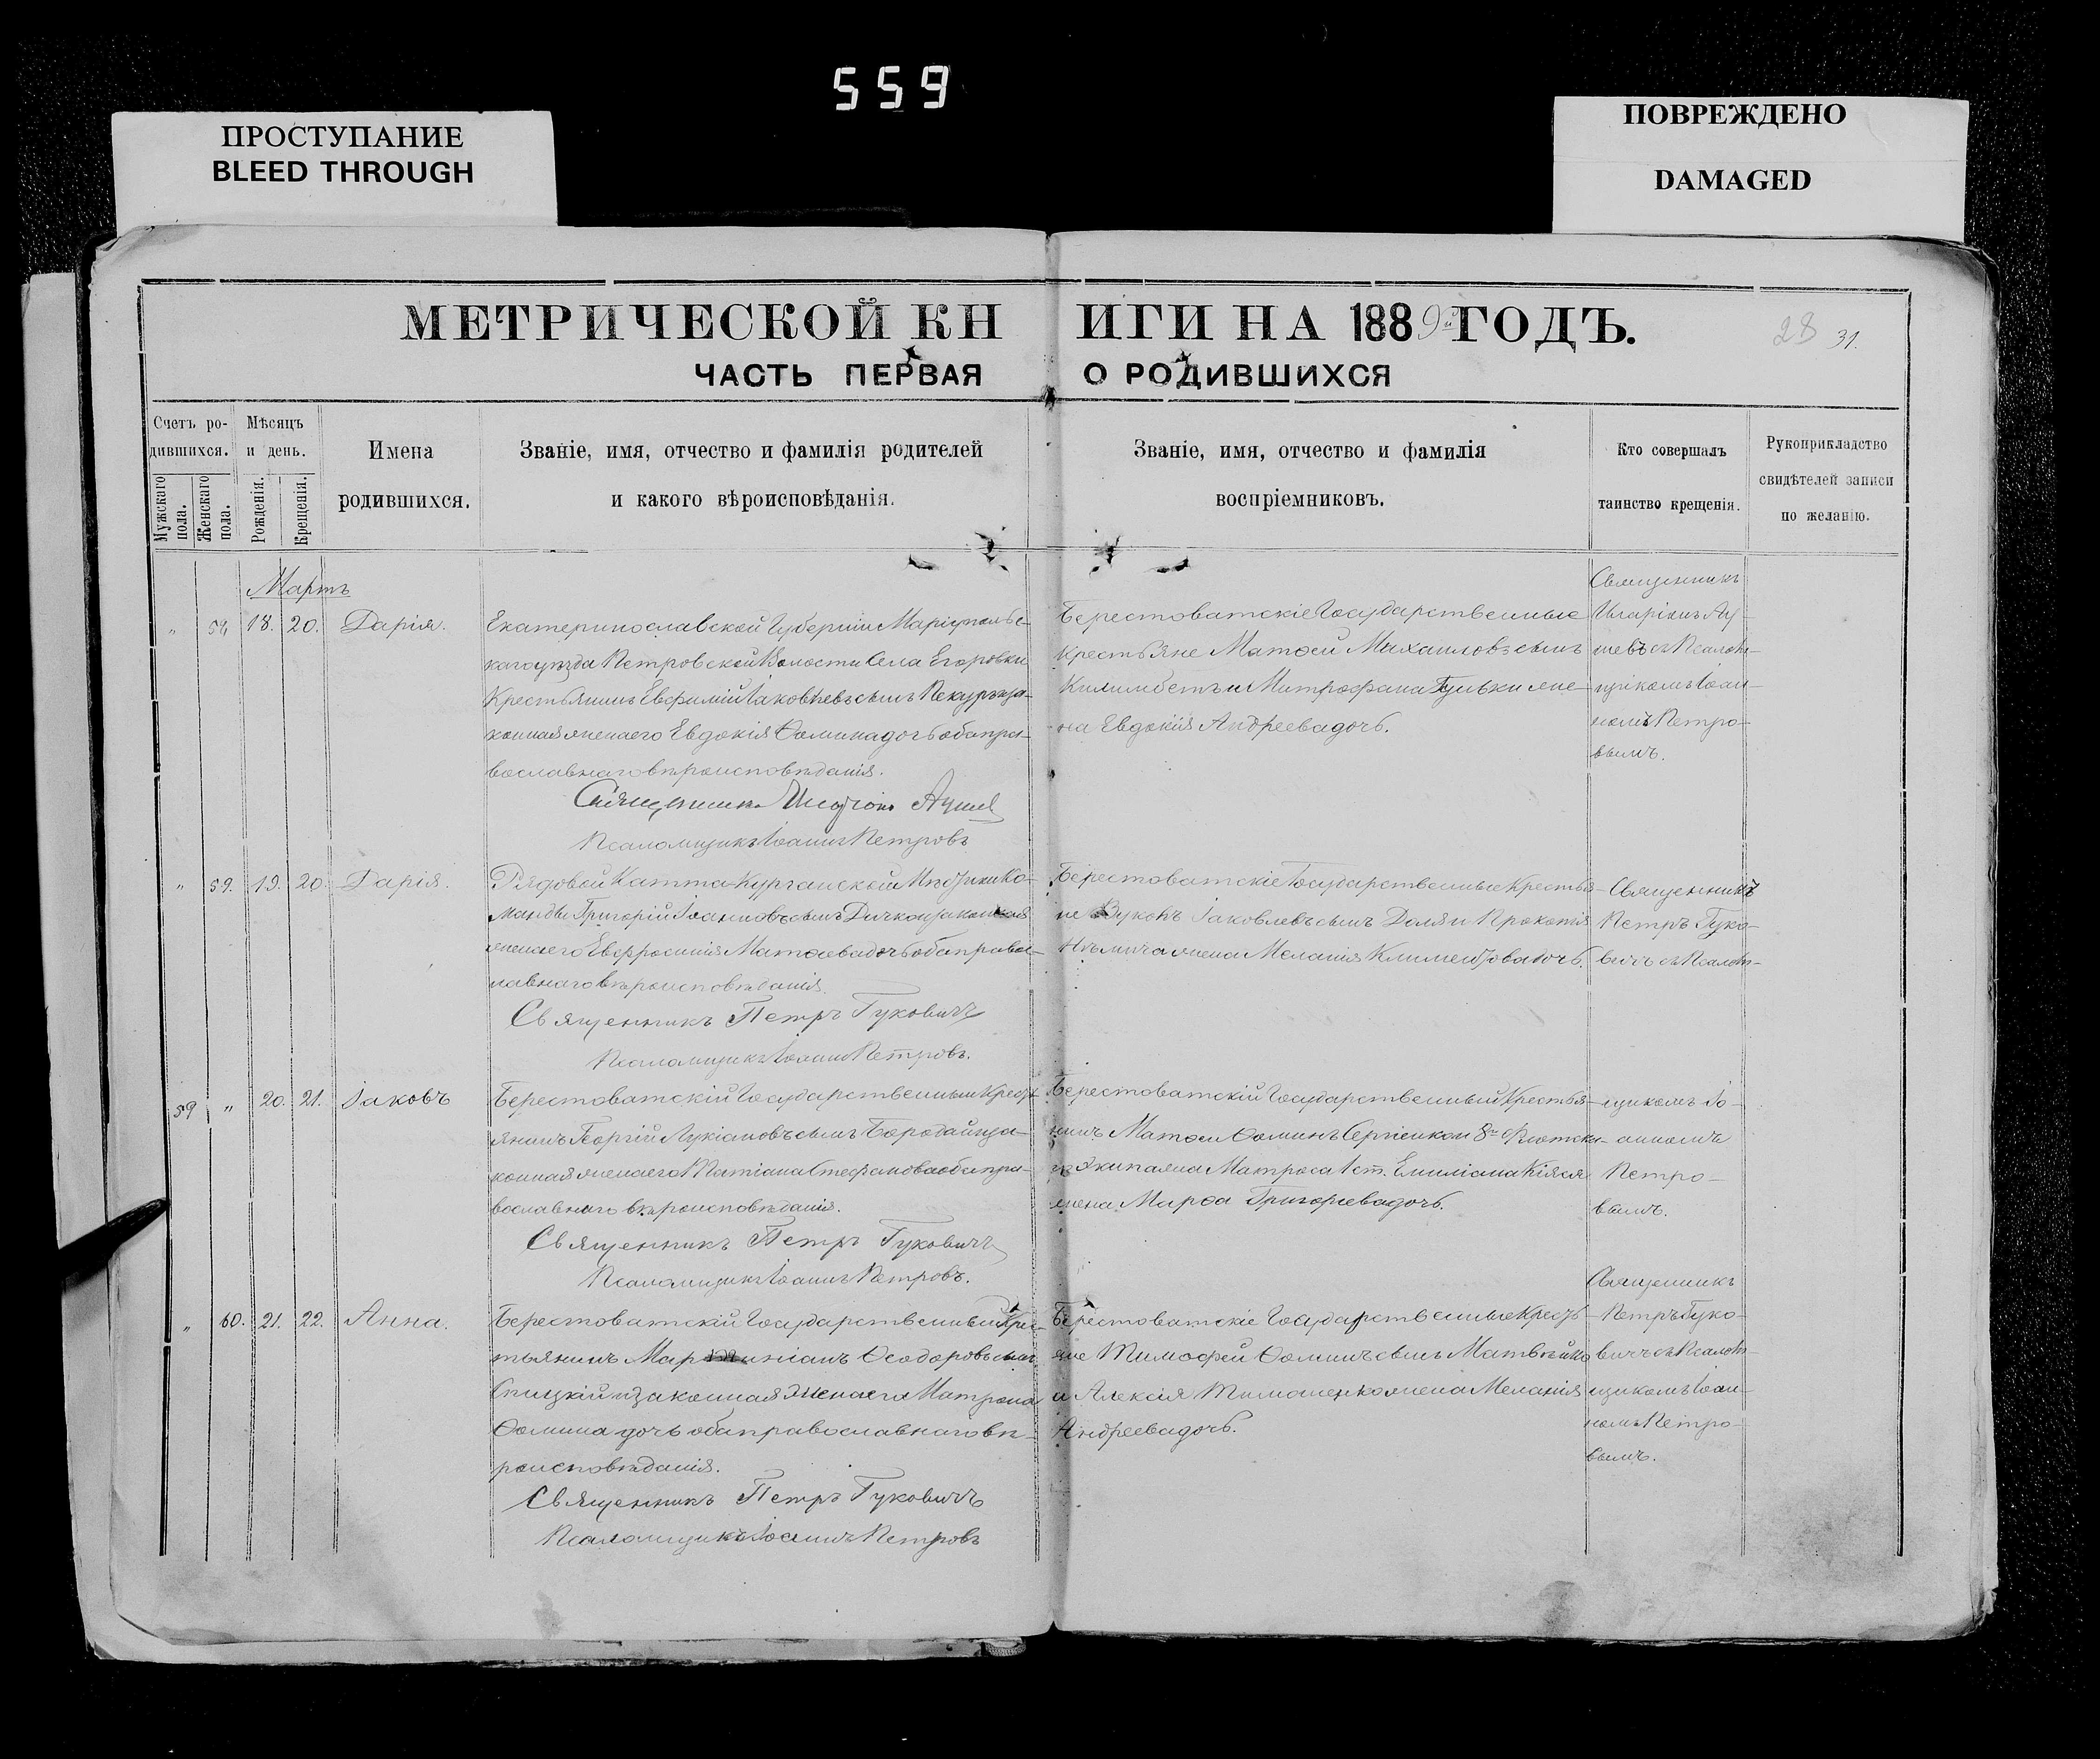 559
ПРОСТУПАНИЕ
BLEED THROUGH
ПОВРЕЖДЕНО
DAMAGED
МЕТРИЧЕСКОЙ КНИГИ НА 1889й ГОДЪ.
28 31.
ЧАСТЬ ПЕРВАЯ О РОДИВШИХСЯ
Счетъ родившихся.
Мужскаго пола.
Женскаго пола.
Мѣсяцъ и день.
Рожденія.
Крещенія.
Имена
родившихся.
Званіе, имя, отчество и фамилія родителей
и какого вѣроисповѣданія.
Званіе, имя, отчество и фамилія
воспріемниковъ.
Кто совершалъ
таинство крещенія.
Рукоприкладство
свидѣтелей записи
по желанію.
Мартъ
" 18. 20. Дарія.
Екатеринославской Губерніи Маріупольс-
каго уѣзда Петровской Волости Села Егоровки
Крестьянинъ Евфимій Іаковлевъ сынъ
конная жена его Евдокія Ѳомина дочь оба пра-
вославнаго вѣроисповѣданія.
Священникъ Иларіонъ
Псаломщикъ Іоаннъ Петровъ
Берестоватскіе Государственные
Крестьяне Матѳей Михаиловъ сынъ
и Митрофана же-
на Евдокія Андреева дочь.
Священникъ
Иларіонъ
съ Псалом-
щикомъ Іоан-
номъ Петро-
вымъ.
" 59. 19. 20. Дарія.
Рядовой Катта-Курганской Ко-
манды Григорій Іоанновъ сынъ законная
жена его Евфросинія Матѳеева дочь оба правос-
лавнаго вѣроисповѣданія.
Священникъ Петръ Гуковичъ
Псаломщикъ Іоаннъ Петровъ.
Берестоватскіе Государственные Крестья-
не Іаковлевъ сынъ и Прокопія
жена Меланія дочь.
Священникъ
Петръ Гуко-
вичъ съ Псалом-
59 " 20. 21. Іаковъ
Берестоватскій Государственный Крест-
янинъ Георгій Лукіановъ сынъ за-
конная жена его Татіана Стефанова оба пра-
вославнаго вѣроисповѣданія.
Священникъ Петръ Гуковичъ
Псаломщикъ Іоаннъ Петровъ.
Берестоватскій Государственный Крестья-
нинъ Матѳей Ѳоминъ 8го Флотска-
го Экипажа Матроса 1 ст. Емиліана
жена Марѳа Григорьева дочь.
щикомъ Іо-
анномъ
Петро-
вымъ.
" 60. 21. 22. Анна.
Берестоватскій Государственный Крес-
тьянинъ Ѳеодоровъ сынъ
и законная жена его Матрона
Ѳомина дочь оба православнаго вѣ-
роисповѣданія.
Священникъ Петръ Гуковичъ
Псаломщикъ Іоаннъ Петровъ
Берестоватскіе Государственные Кресть-
яне Тимофей Ѳоминъ сынъ
и Алексія жена Меланія
Андреева дочь.
Священникъ
Петръ Гуко-
вичъ съ Псалом-
щикомъ Іоан-
номъ Петро-
вымъ.